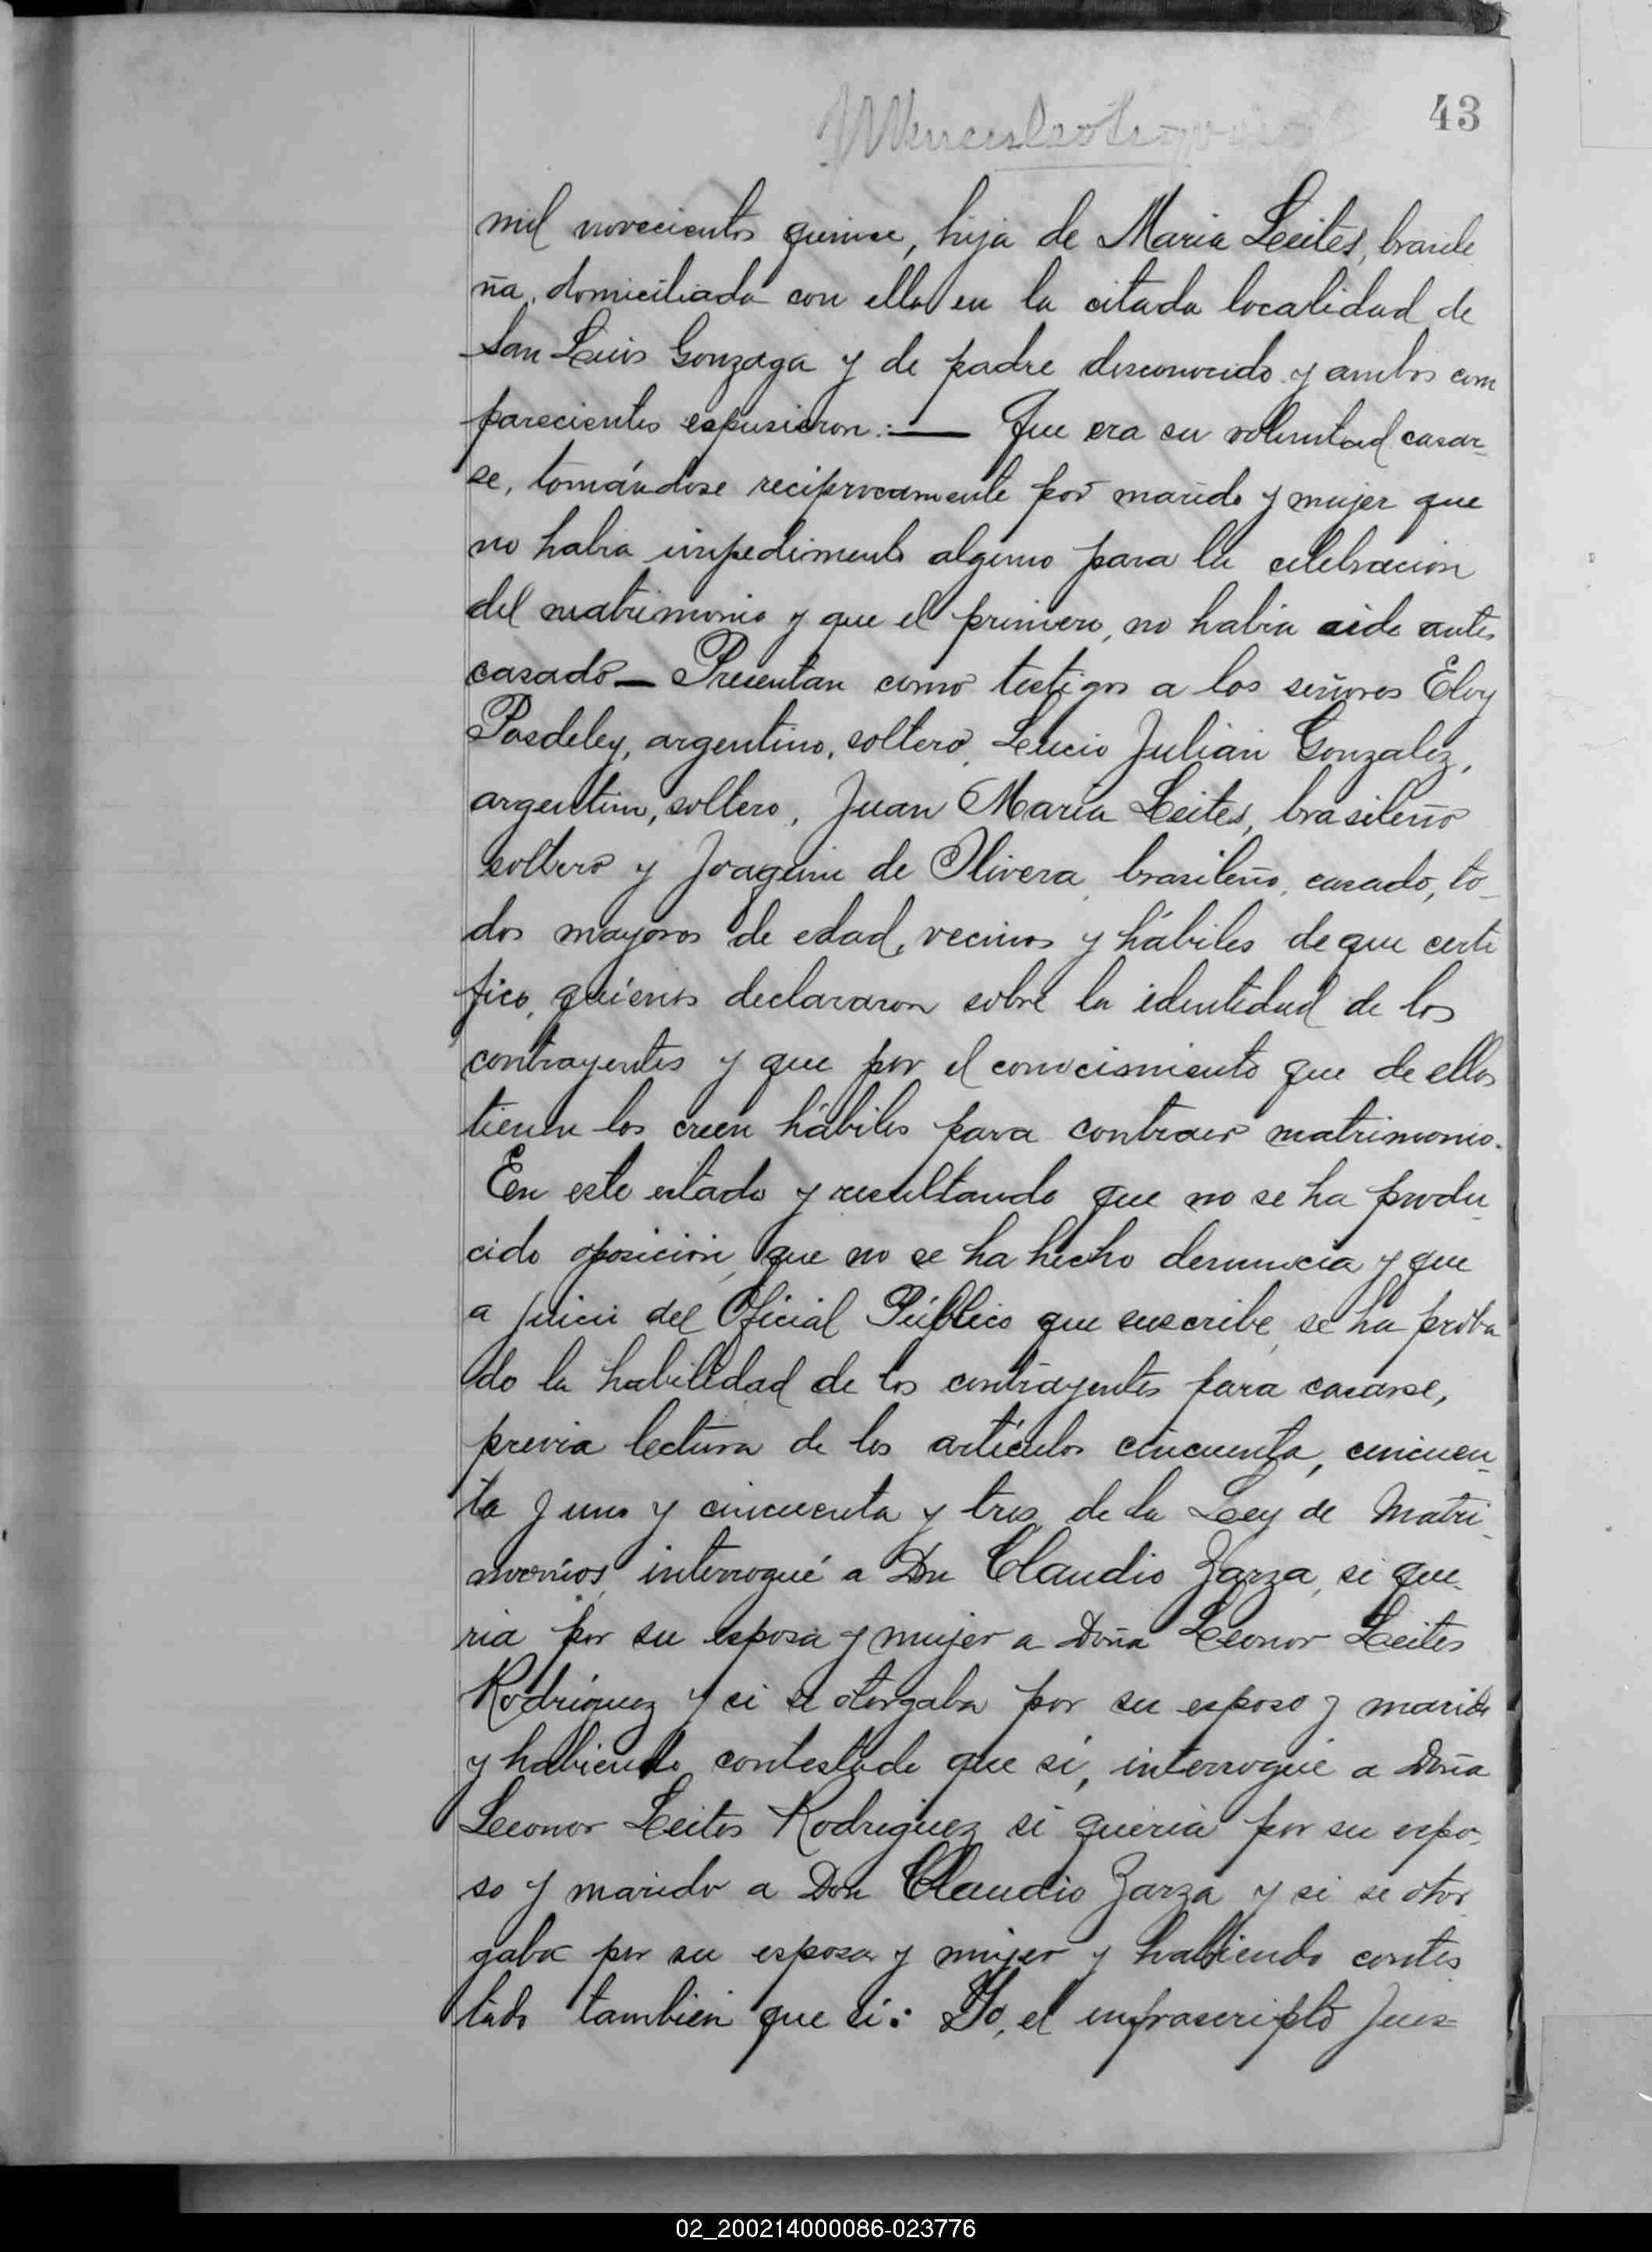 43
mil novecientos quince, hija de Maria Leites, brasile
ña, domiciliada con ella en la citada localidad de
San Luis Gonzaga y de padre desconocido y ambos com
parecientes expusieron:— Que era su voluntad casar-
se, tomándose reciprocamente por marido y mujer que
no habia impedimento alguno para la celebracion
del matrimonio y que el primero, no habia sido antes
casado— Presentan como testigos a los señores Eloy
Posdeley, argentino, soltero, Lucio Julián Gonzalez,
argentino, soltero, Juan María Leites, brasileño
soltero y Joaquin de Olivera, brasileño, casado, to-
dos mayores de edad, vecinos y hábiles de que certi
fico, quiénes declararon sobre la identidad de los
contrayentes y que por el conocimiento que de ellos
tienen los creen hábiles para contraer matrimonio.
En este estado y resultando que no se ha produ-
cido oposición, que no se ha hecho denuncia y que
a juicio del Oficial Público que suscribe, se ha proba
do la habilidad de los contrayentes para casarse,
previa lectura de los artículos cincuenta, cincuen-
ta y uno y cincuenta y tres de la Ley de Matri-
monios, interrogué a Don Claudio Zarza, si que-
ria por su esposa y mujer a Doña Leonor Leites
Rodriguez y si se otorgaba por su esposo y marido
y habiendo contestado que sí, interrogué a Doña
Leonor Leites Rodriguez si queria por su espo-
so y marido a Don Claudio Zarza y si se otor
gaba por su esposa y mujer y habiendo contes
tado también que sí: Yo, el infrascripto Juez
02_200214000086-023776